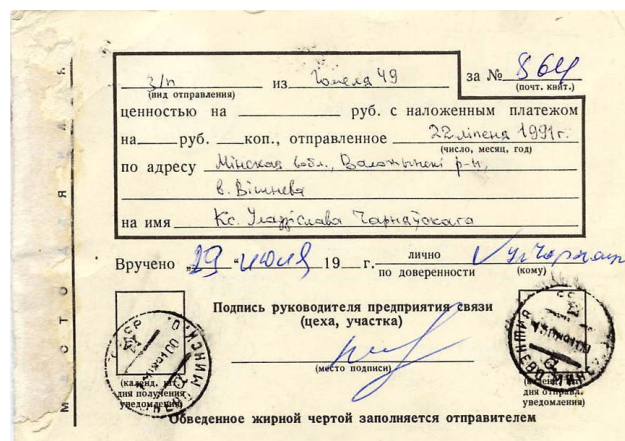 з/п из Гомеля 49 за № 864
(вид отправления) (почт. квит.)
ценностью на руб. с наложенным платежом
на руб. коп., отправленное 22 ліпеня 1991 г.
(число, месяц, год)
по адресу Мінская вобл., Валожынскі р-н,
в. Вішнева
на имя Кс. Уладзіслава Чарняўскага
Вручено „29 “ июля 19 г. лично
по доверенности (кому)
Подпись руководителя предприятия связи
(цеха, участка)
(место подписи)
(календ. шт.
дня получения
уведомления)
дня отправл.
уведомления)
Обведенное жирной чертой заполняется отправителем